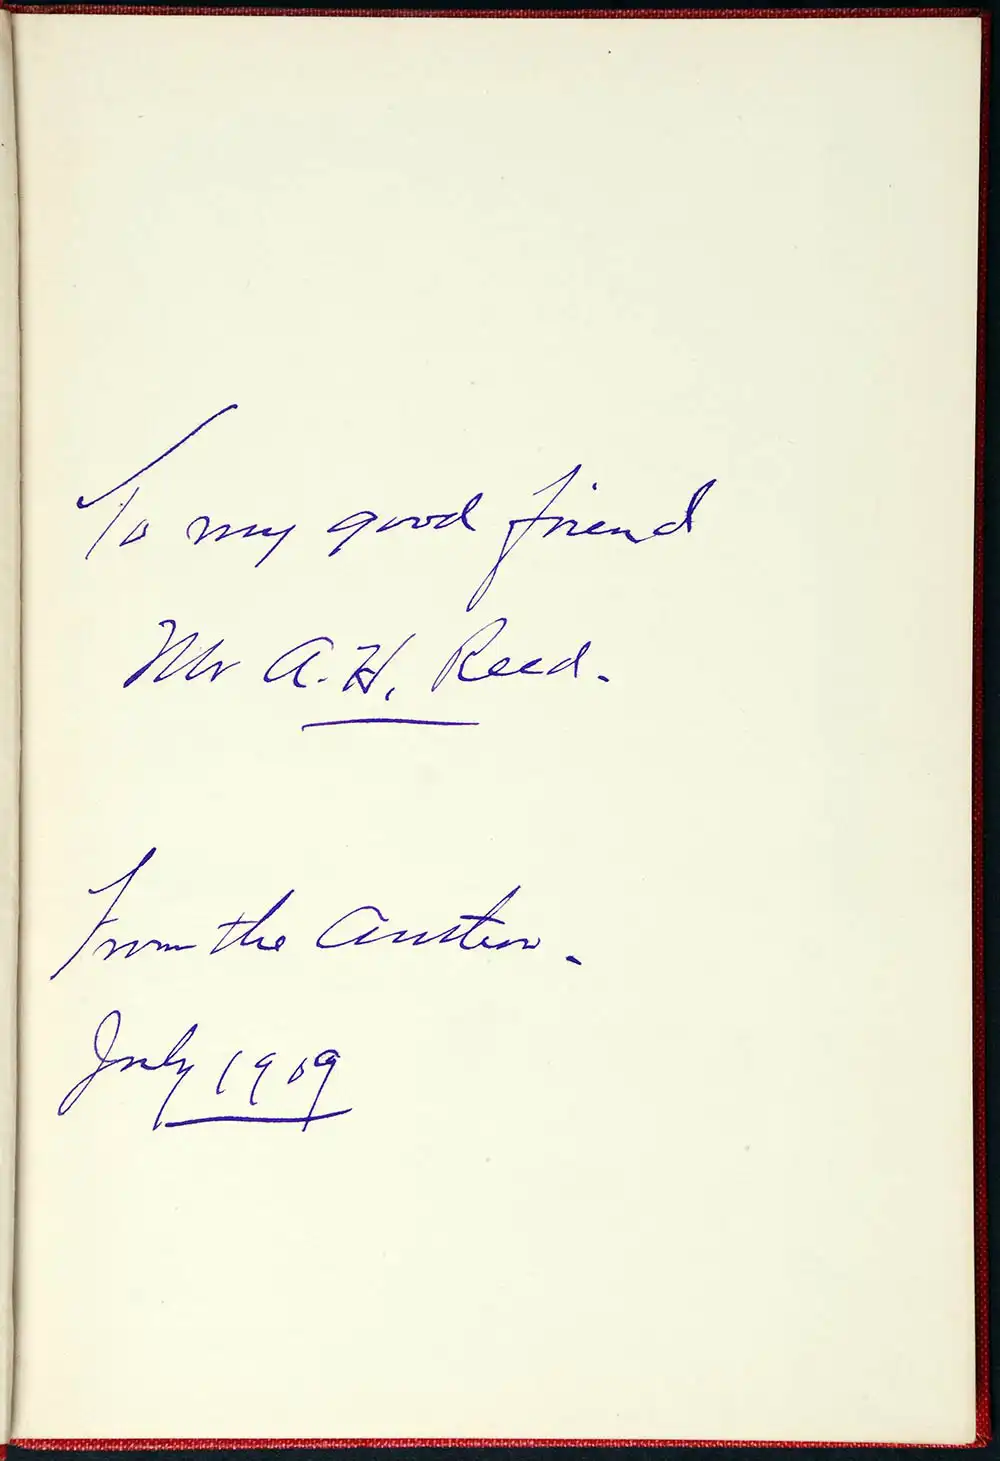 To my good friend
Mr A. H. Reed.
From the
July 1909